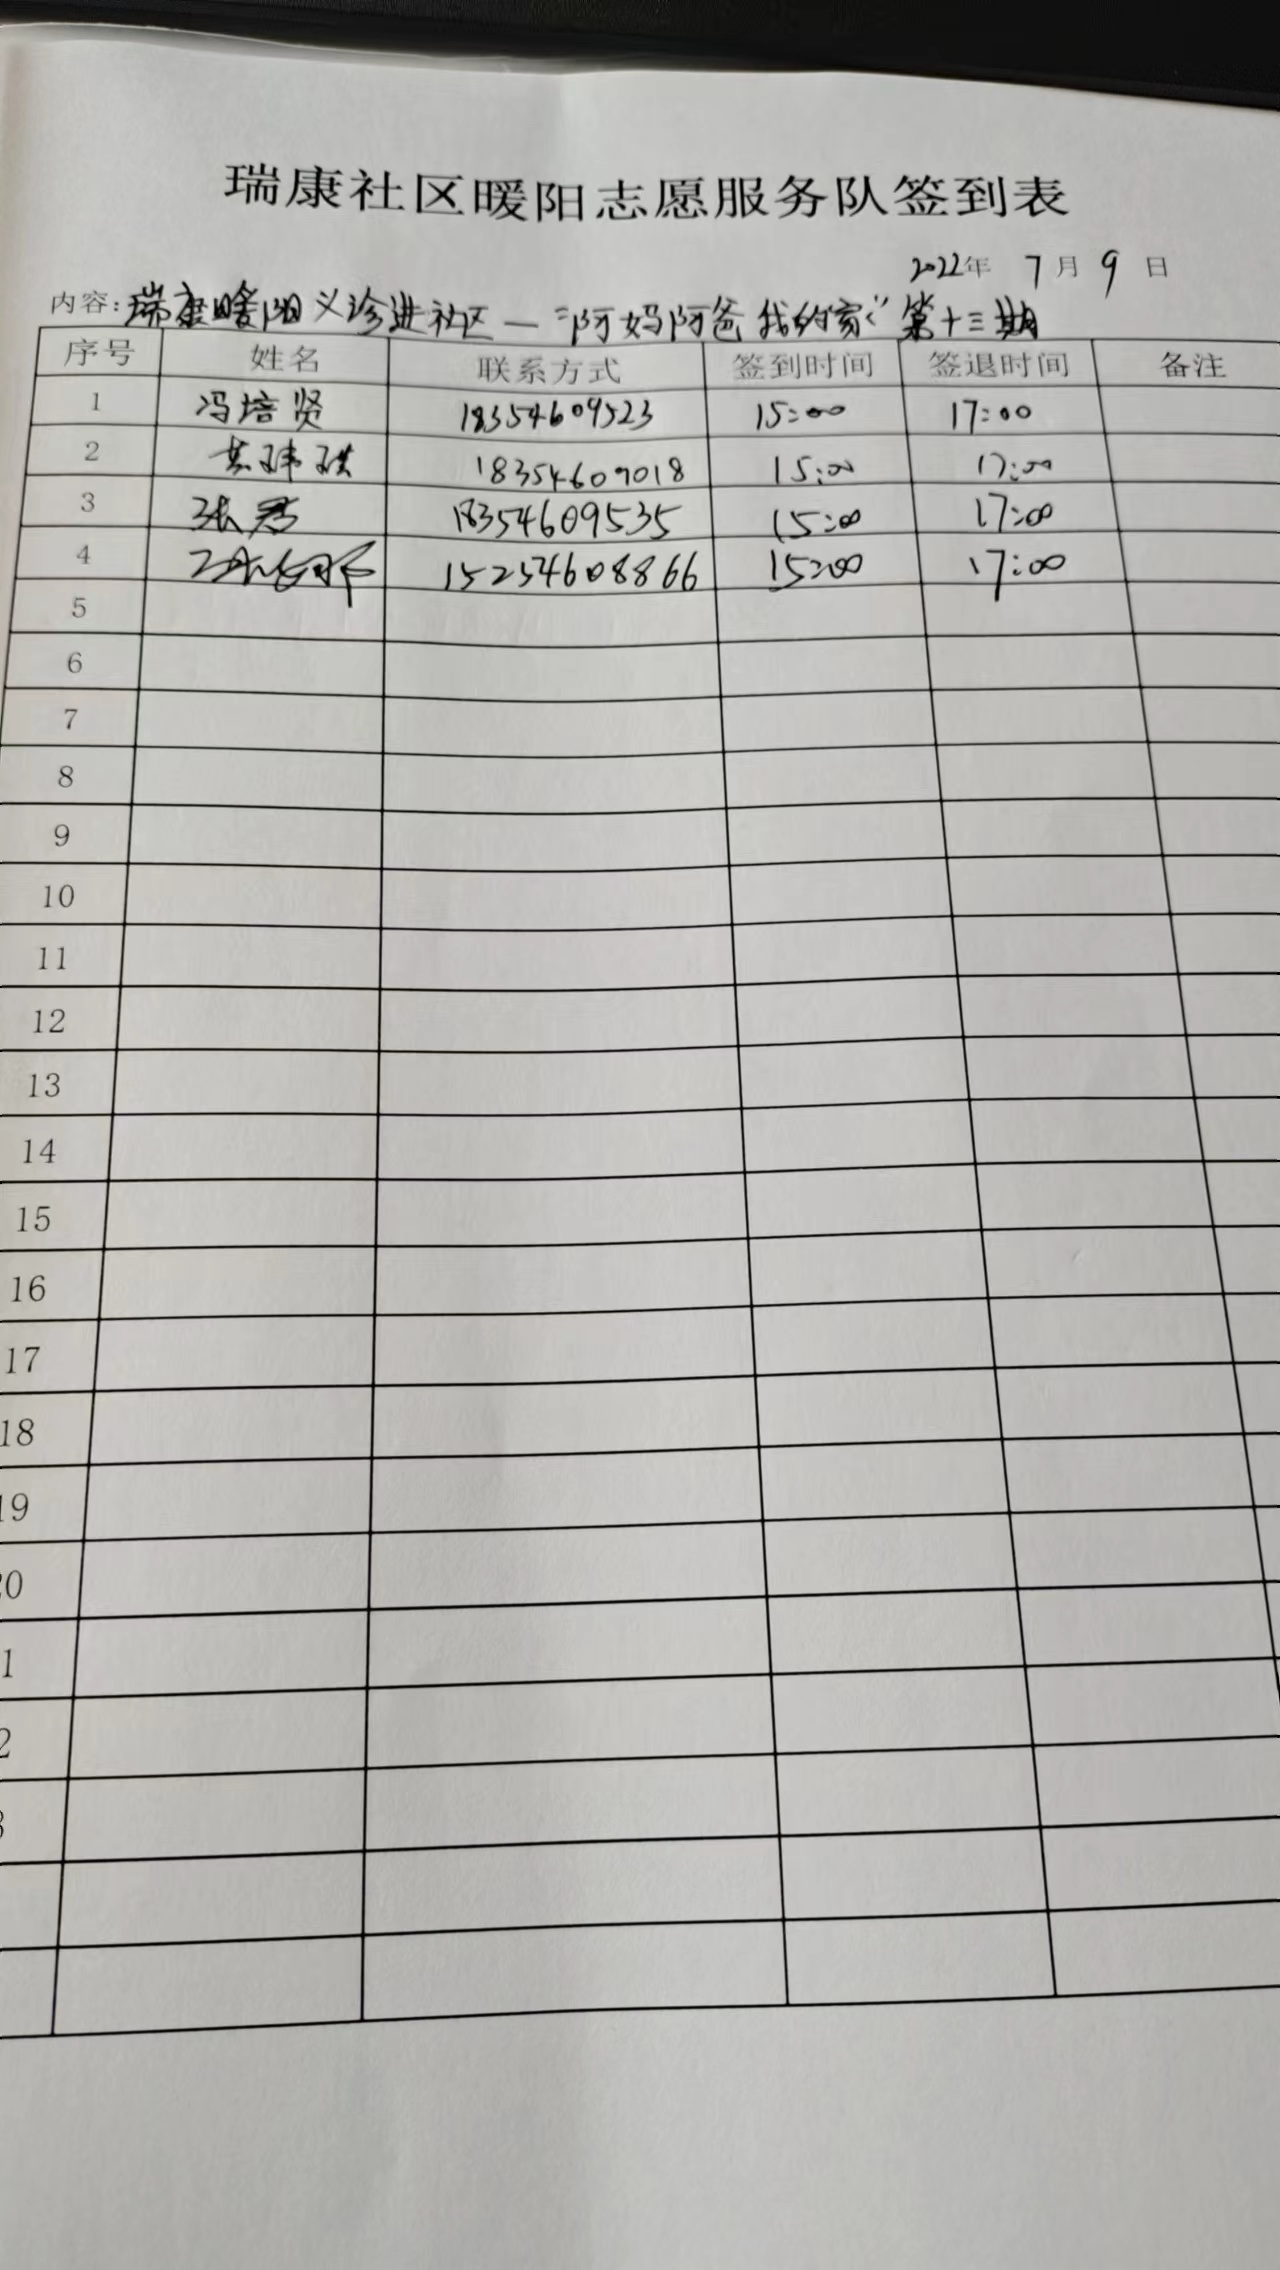 瑞康社区暖阳志愿服务队签到表
2022年 7月 9日
内容:瑞康暖阳义诊进社区—“阿妈阿爸我的家”第十三期
序号 姓名 联系方式 签到时间 签退时间 备注
1 冯培贤 18354609523 15:00 17:00
2 18354609018 15:00 17:00
3 张君 18354609535 15:00 17:00
4 15254608866 15:00 17:00
5
6
7
8
9
10
11
12
13
14
15
16
17
18
19
20
1
2
3